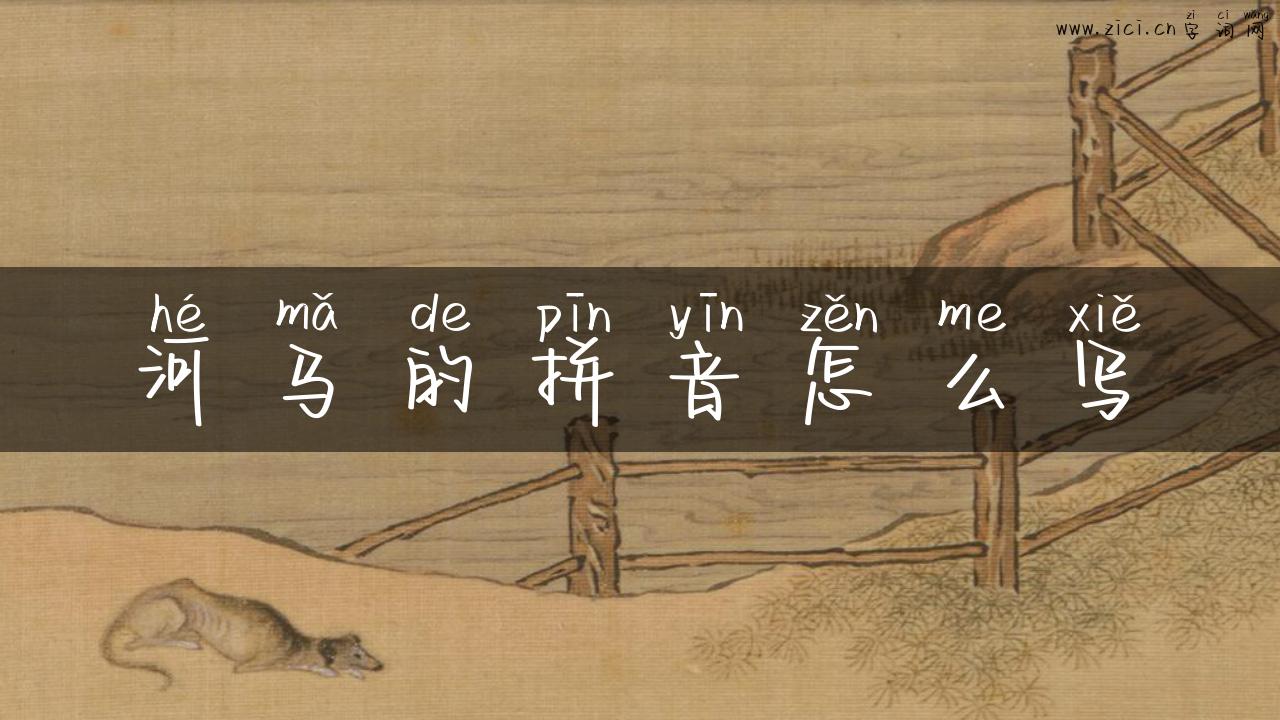 zi ci wang
www.zici.cn字词网
hé mǎ de pīn yīn zěn me xiě
河马的拼音怎么写